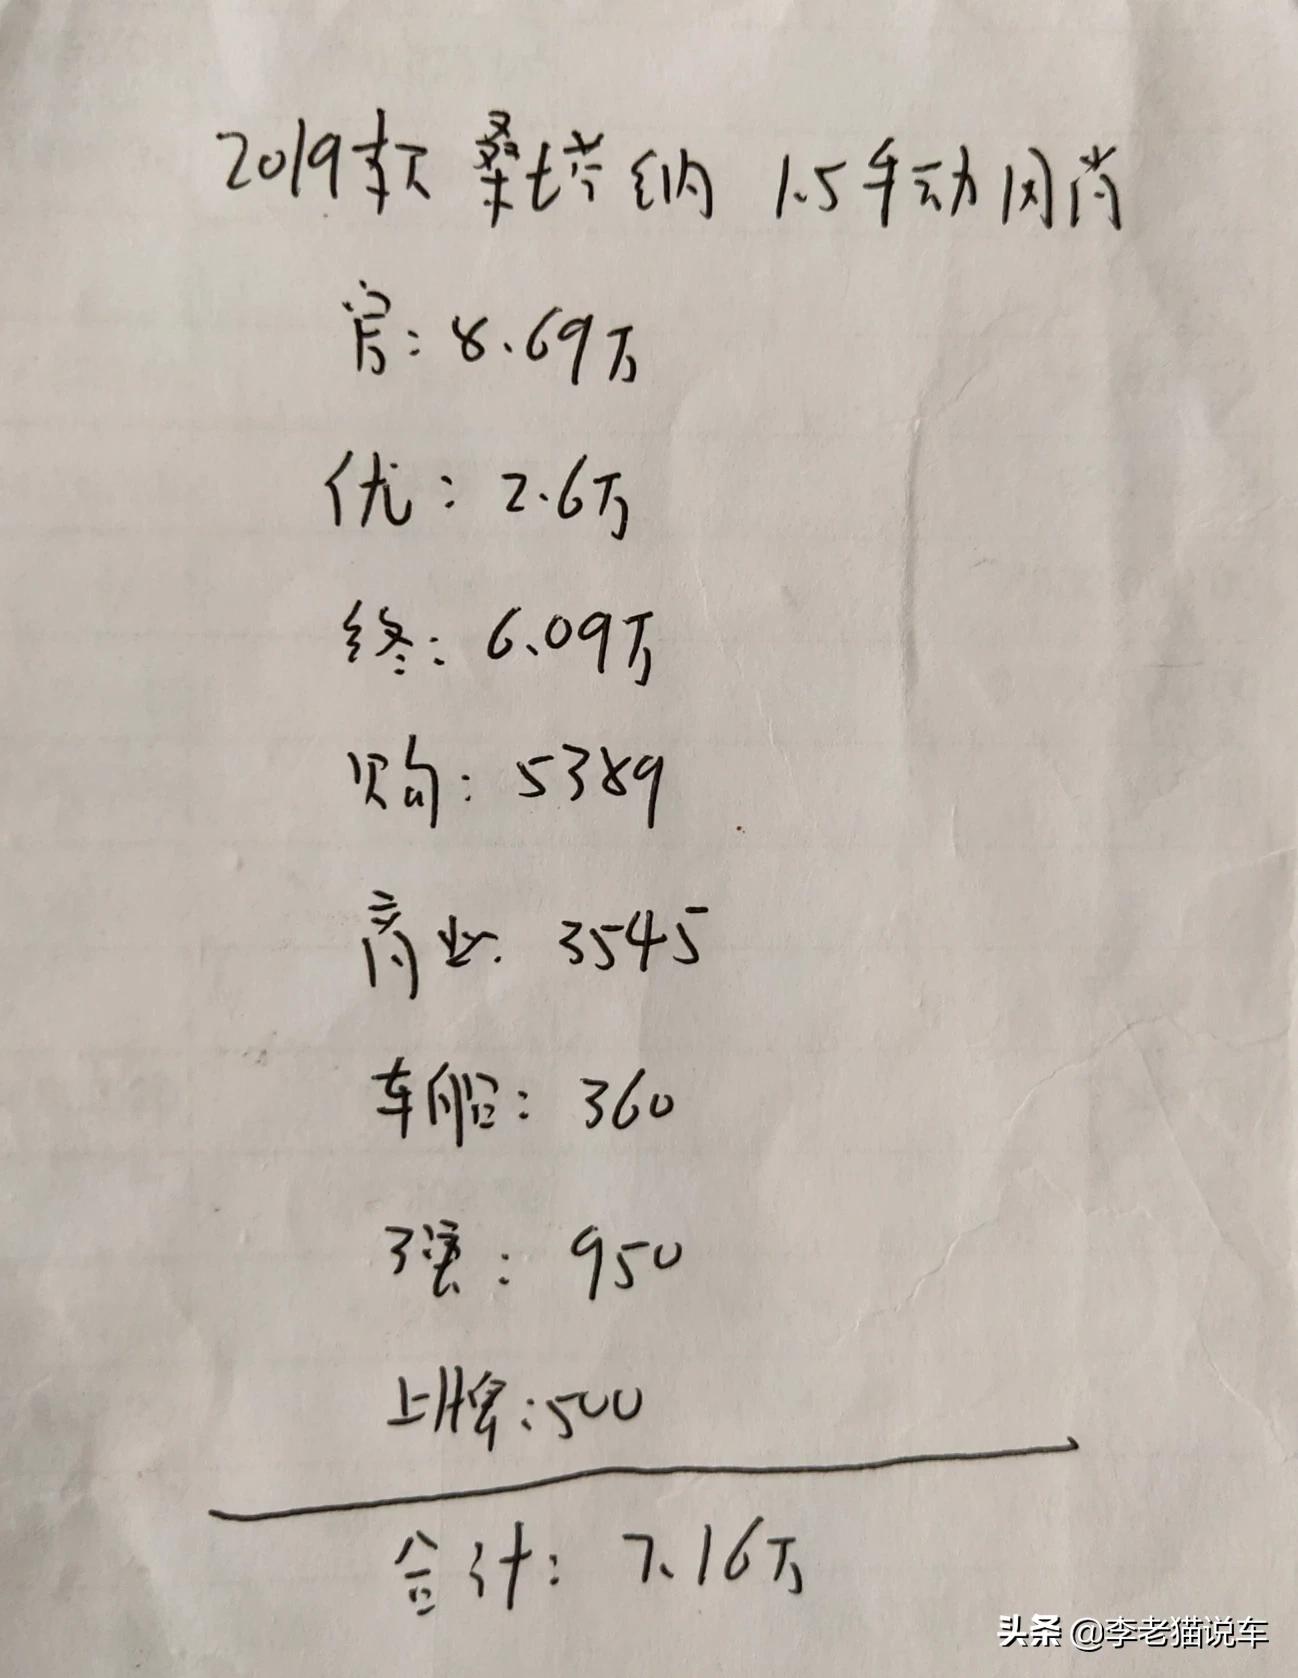 2019款 桑塔纳 1.5手动风尚
官：8.69万
优：2.6万
终：6.09万
购：5389
商业：3545
车船：360
交强：950
上牌：500
合计：7.16万
头条 @李老猫说车